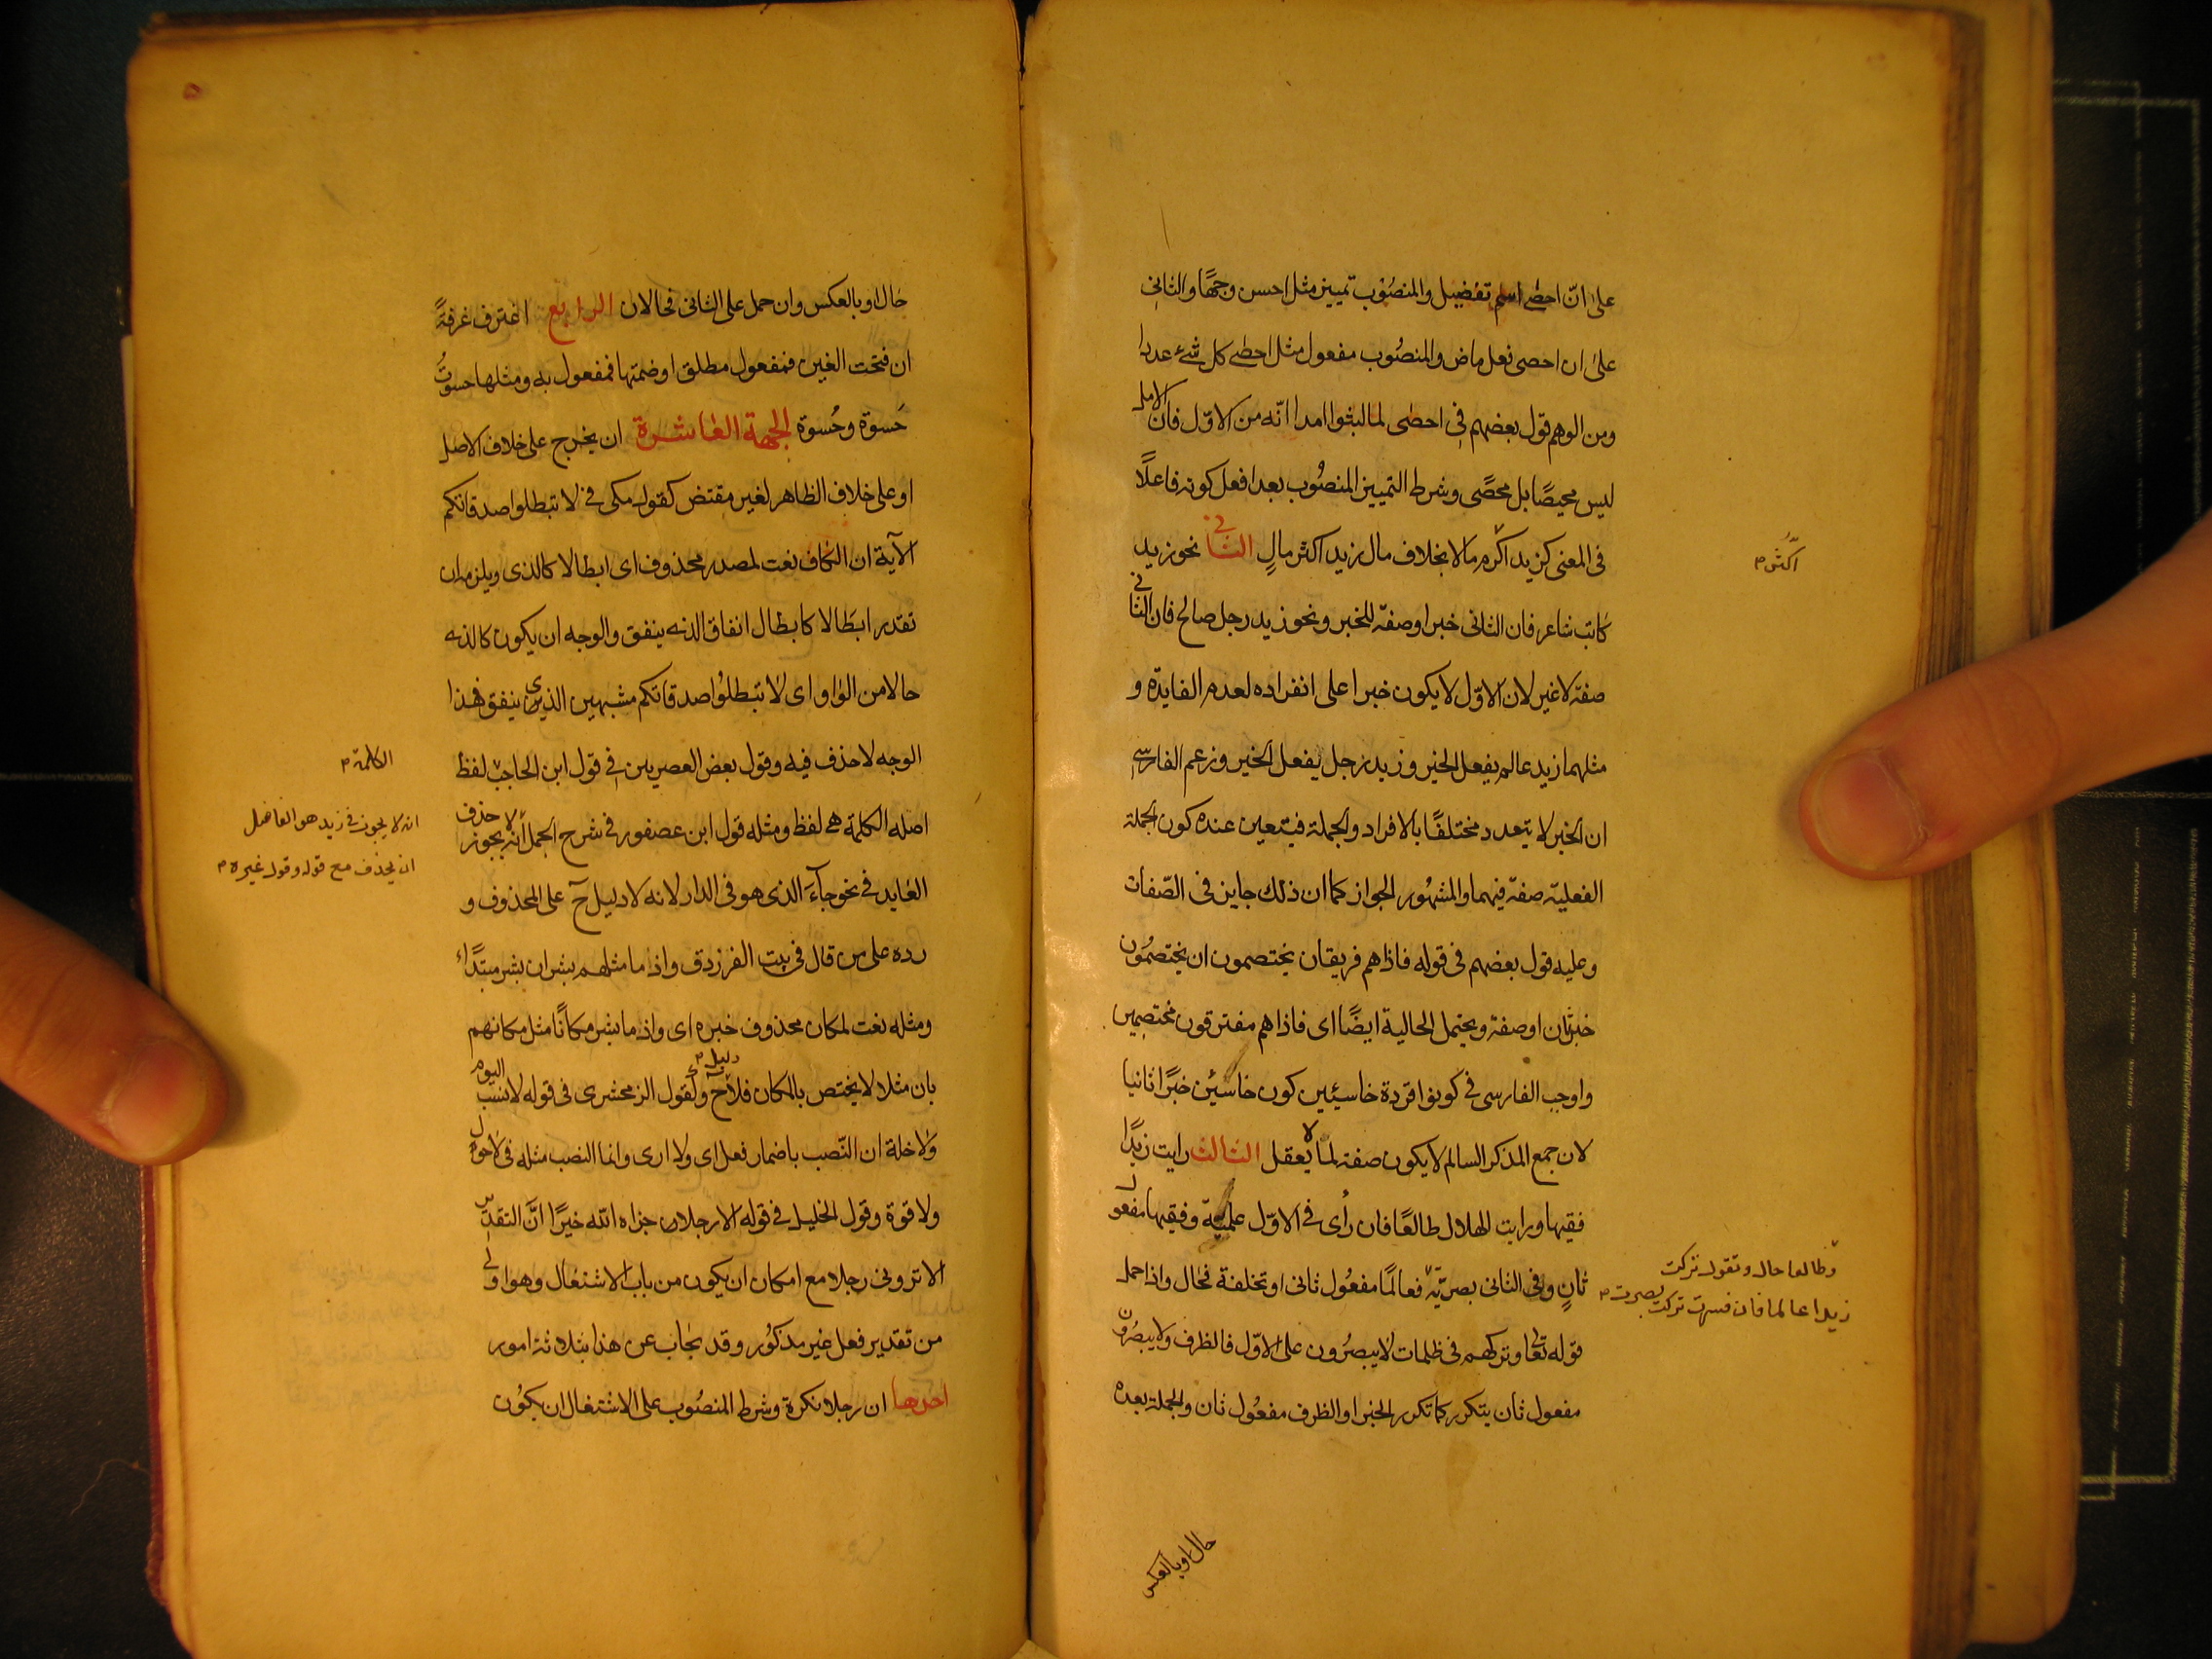 على انّ احصى اسم تفضيل والمنصُوب تمييز مثل احسن وجهًا والثانى
على ان احصى فعل ماض والمنصُوب مفعول مثل احصى كل شئ عددا
ومن الوهم قول بعضهم فى احصى لما لبثوا امدا انّه من الاوّل فان الامد
ليس محيصًا بل محصًى وشرط التمييز المنصُوب بعد افعل كونه فاعلًا
فى المعنى كزيد اكرم مالا بخلاف مال زيد اكثر مالٍ الثانى نحو زيد
اكثر م
كاتب شاعر فان الثانى خبر او صفة للخبر ونحو زيد رجل صالح فان الثانى
صفة لا غير لان الاوّل لا يكون خبرا على انفراده لعدم الفايدة و
مثلهما زيد عالم يفعل الخير وزيد رجل يفعل الخير وزعم الفارسى
ان الخبر لا يتعدد مختلفًا بالافراد والجملة فيتعين عنده كون الجملة
الفعلية صفة فيهما والمشهور الجواز كما ان ذلك جايز فى الصّفات
وعليه قول بعضهم فى قوله فاذا هم فريقان يختصمون ان يختصمُون
خبر ثان او صفة ويحتمل الحالية ايضًا اى فاذا هم مفترقون مختصمين
واوجب الفارسى فى كونوا قردة خاسئين كون خاسئين خبرًا ثانيا
لان جمع المذكر السالم لا يكون صفة لما لا يعقل الثالث رايت زيدًا
فقيها ورايت الهلال طالعًا فان رأى فى الاوّل علميّة وفقيها مفعول
ثانٍ وفى الثانى بصريّة فعالمًا مفعُول ثانى او تخلفة فحال واذا حمل
وطالعا حال وتقول تركت
زيدا عالما فان فسرت تركت بصيرت م
قوله تعالى وتركهم فى ظلمات لا يبصرُون على الاوّل فالظرف ولا يبصرُون
مفعول ثان يتكرر كما تكرر الخبر او الظرف مفعُول ثان والجملة بعده
حال او بالعكس
٥
حال او بالعكس وان حمل على الثانى فحالان الرابع اغترف غرفةً
ان فتحت الغين فمفعول مطلق او ضمتها فمفعول به ومثلها حسوتُ
حَسوة وحُسوة الجهة العاشرة ان يخرج على خلاف الاصل
او على خلاف الظاهر لغير مقتض كقول مكى فى لا تبطلوا صدقاتكم
الآية ان الكاف نعت لمصدر محذوف اى ابطالا كالذى ويلزم ان
تقدر ابطالا كابطال انفاق الذى ينفق والوجه ان يكون كالذى
حالا من الواو اى لا تبطلوُا صدقاتكم مشبهين الذى ينفق فهذا
الوجه لا حذف فيه وقول بعض العصريين فى قول ابن الحاجب لفظ
الكلمة م
اصله الكلمة هى لفظ ومثله قول ابن عصفور فى شرح الجمل انه يجوز حذف
انه لا يجوز فى زيد هو الفاضل
ان يحذف مع قوله وقول غيره م
العايد فى نحو جآءَ الذى هو فى الدار لانه لا دليل ح على المحذوف و
رده على من قال فى بيت الفرزدق واذ ما مثلهم بشر ان بشر مبتدًاء
ومثله نعت لمكان محذوف خبره اى واذ ما بشر مكانًا مثل مكانهم
بان مثلا لا يختص بالمكان فلا دليل ح وكقول الزمخشرى فى قوله لا نسب اليوم
ولا خلة ان النّصب باضمار فعل اى ولا ارى وانما النصب مثله فى لا حول
ولا قوة وقول الخليل فى قوله الا رجلا جزاه الله خيرًا انَّ التقدير
الا ترونى رجلا مع امكان ان يكون من باب الاشتغال وهو اولى
من تقدير فعل غير مذكُور وقد يجاب عن هذا بثلاثة امور
احدها ان رجلا نكرة وشرط المنصُوب على الاشتغال ان يكوُن